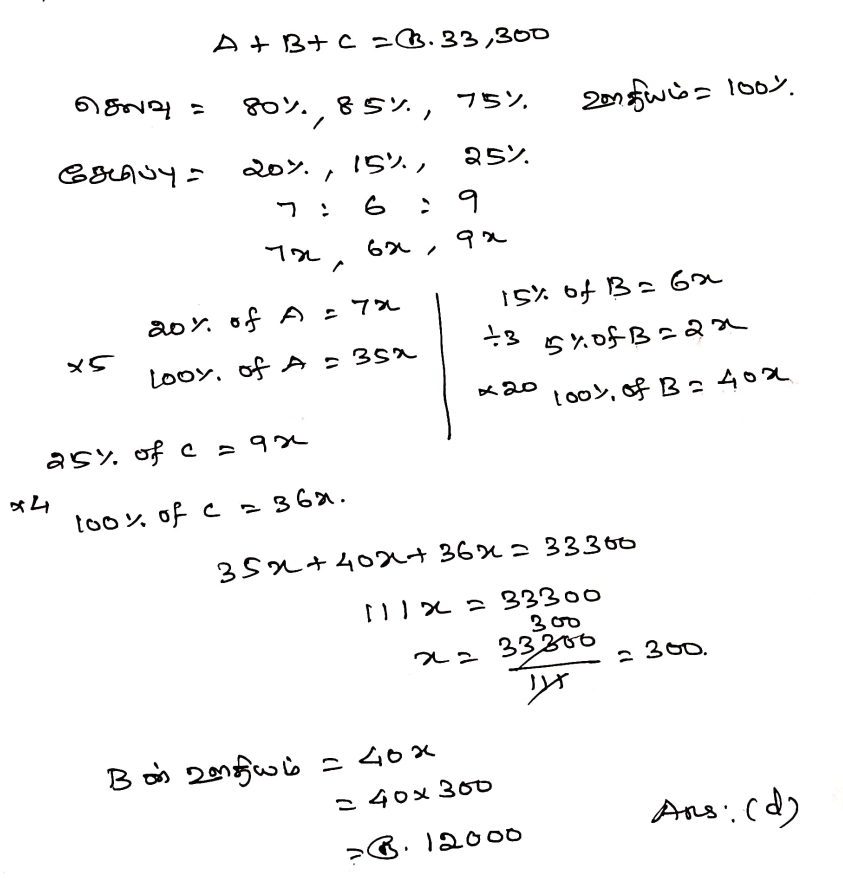 A + B + C = ரூ. 33,300
செலவு = 80%, 85%, 75% ஊதியம் = 100%.
சேமிப்பு = 20%, 15%, 25%
7 : 6 : 9
7x, 6x, 9x
20% of A = 7x
x5 100% of A = 35x
15% of B = 6x
÷3 5% of B = 2x
x20 100% of B = 40x
25% of C = 9x
x4 100% of C = 36x.
35x + 40x + 36x = 33300
111x = 33300
300
x = 33300 / 111 = 300.
B ன் ஊதியம் = 40x
= 40 x 300
= ரூ. 12000
Ans: (d)